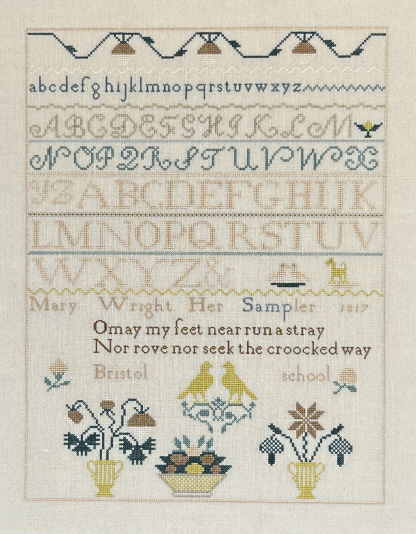 abcdefghijklmnopqrstuvwxyz
ABCDEFGHIKLM
NOPQRSTUVWX
YZABCDEFGHIJK
LMNOPQRSTUV
WXYZ&
Mary Wright Her Sampler 1817
Omay my ſeet near run a stray
Nor rove nor seek the croocked way
Bristol school